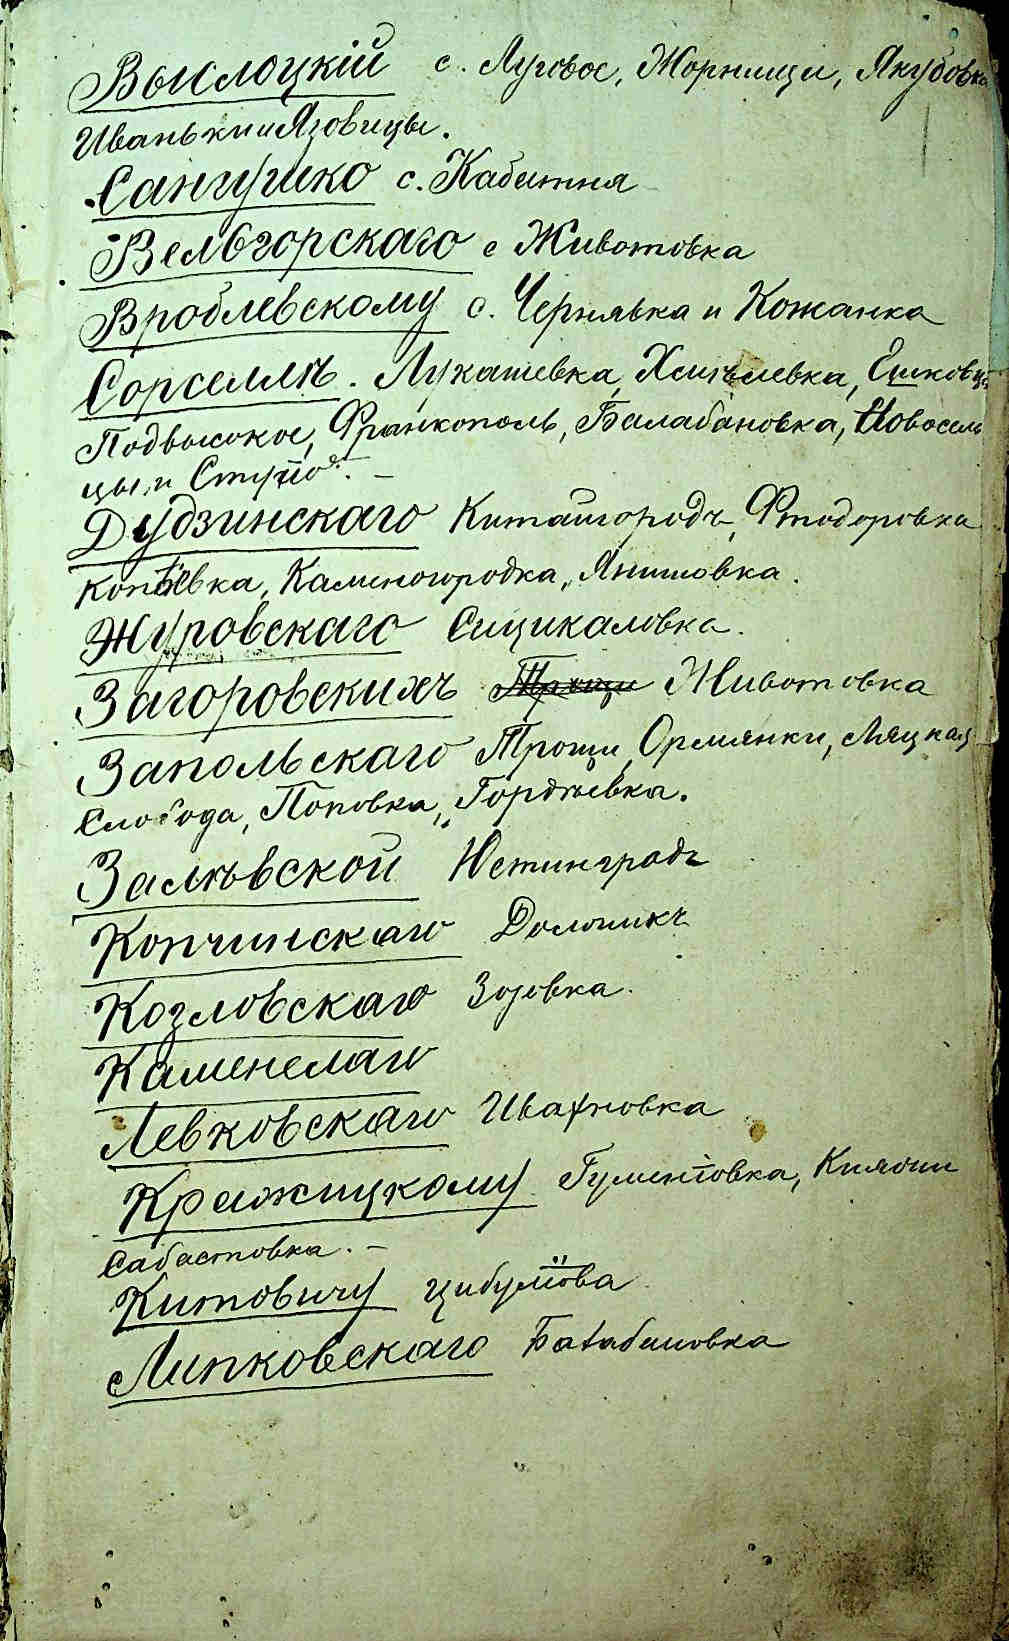 Выслоцкій с. Луговое, Жорнищи, Якубовка
Иваньки и Яговицы.
Сангушко с. Кабатня
Вельгорскаго с Животовка
Вроблевскому с. Чернявка и Кожанка
Сорселлъ. Лукашевка, Хмѣлевка,
Подвысокое, Франкополь, Балабановка, Новосель
цы, и
Дудзинскаго Китайгородъ, Фтодоровка
Копіевка, Каменогородка, Янишовка.
Журовскаго Сицикаловка.
Загоровскихъ Трощи Животовка
Запольскаго Трощи, Ормянки, Ляцкая
Слобода, Поповка, Гордѣевка.
Залѣвской Юстинградъ
Копчинскаго
Козловскаго Зозовка.
Левковскаго Ивахновка
Крыжицкому
Сабастовка. –
Китовичу Цибулёва
Липковскаго Балабановка